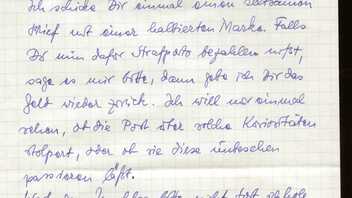 Ich schicke Dir einmal einen seltsamen
Brief mit einer halbierten Marke. Falls
Du nun dafür Strafporto bezahlen mußt,
sage es mir bitte, dann gebe ich Dir das
Geld wieder zurück. Ich will nur einmal
sehen, ob die Post über solche Kuriositäten
stolpert, oder ob sie diese unbesehen
passieren läßt.
bitte nicht